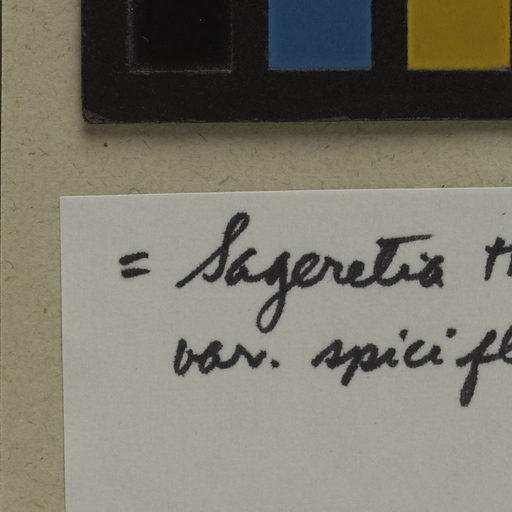 = Sageretia
var. spicifl